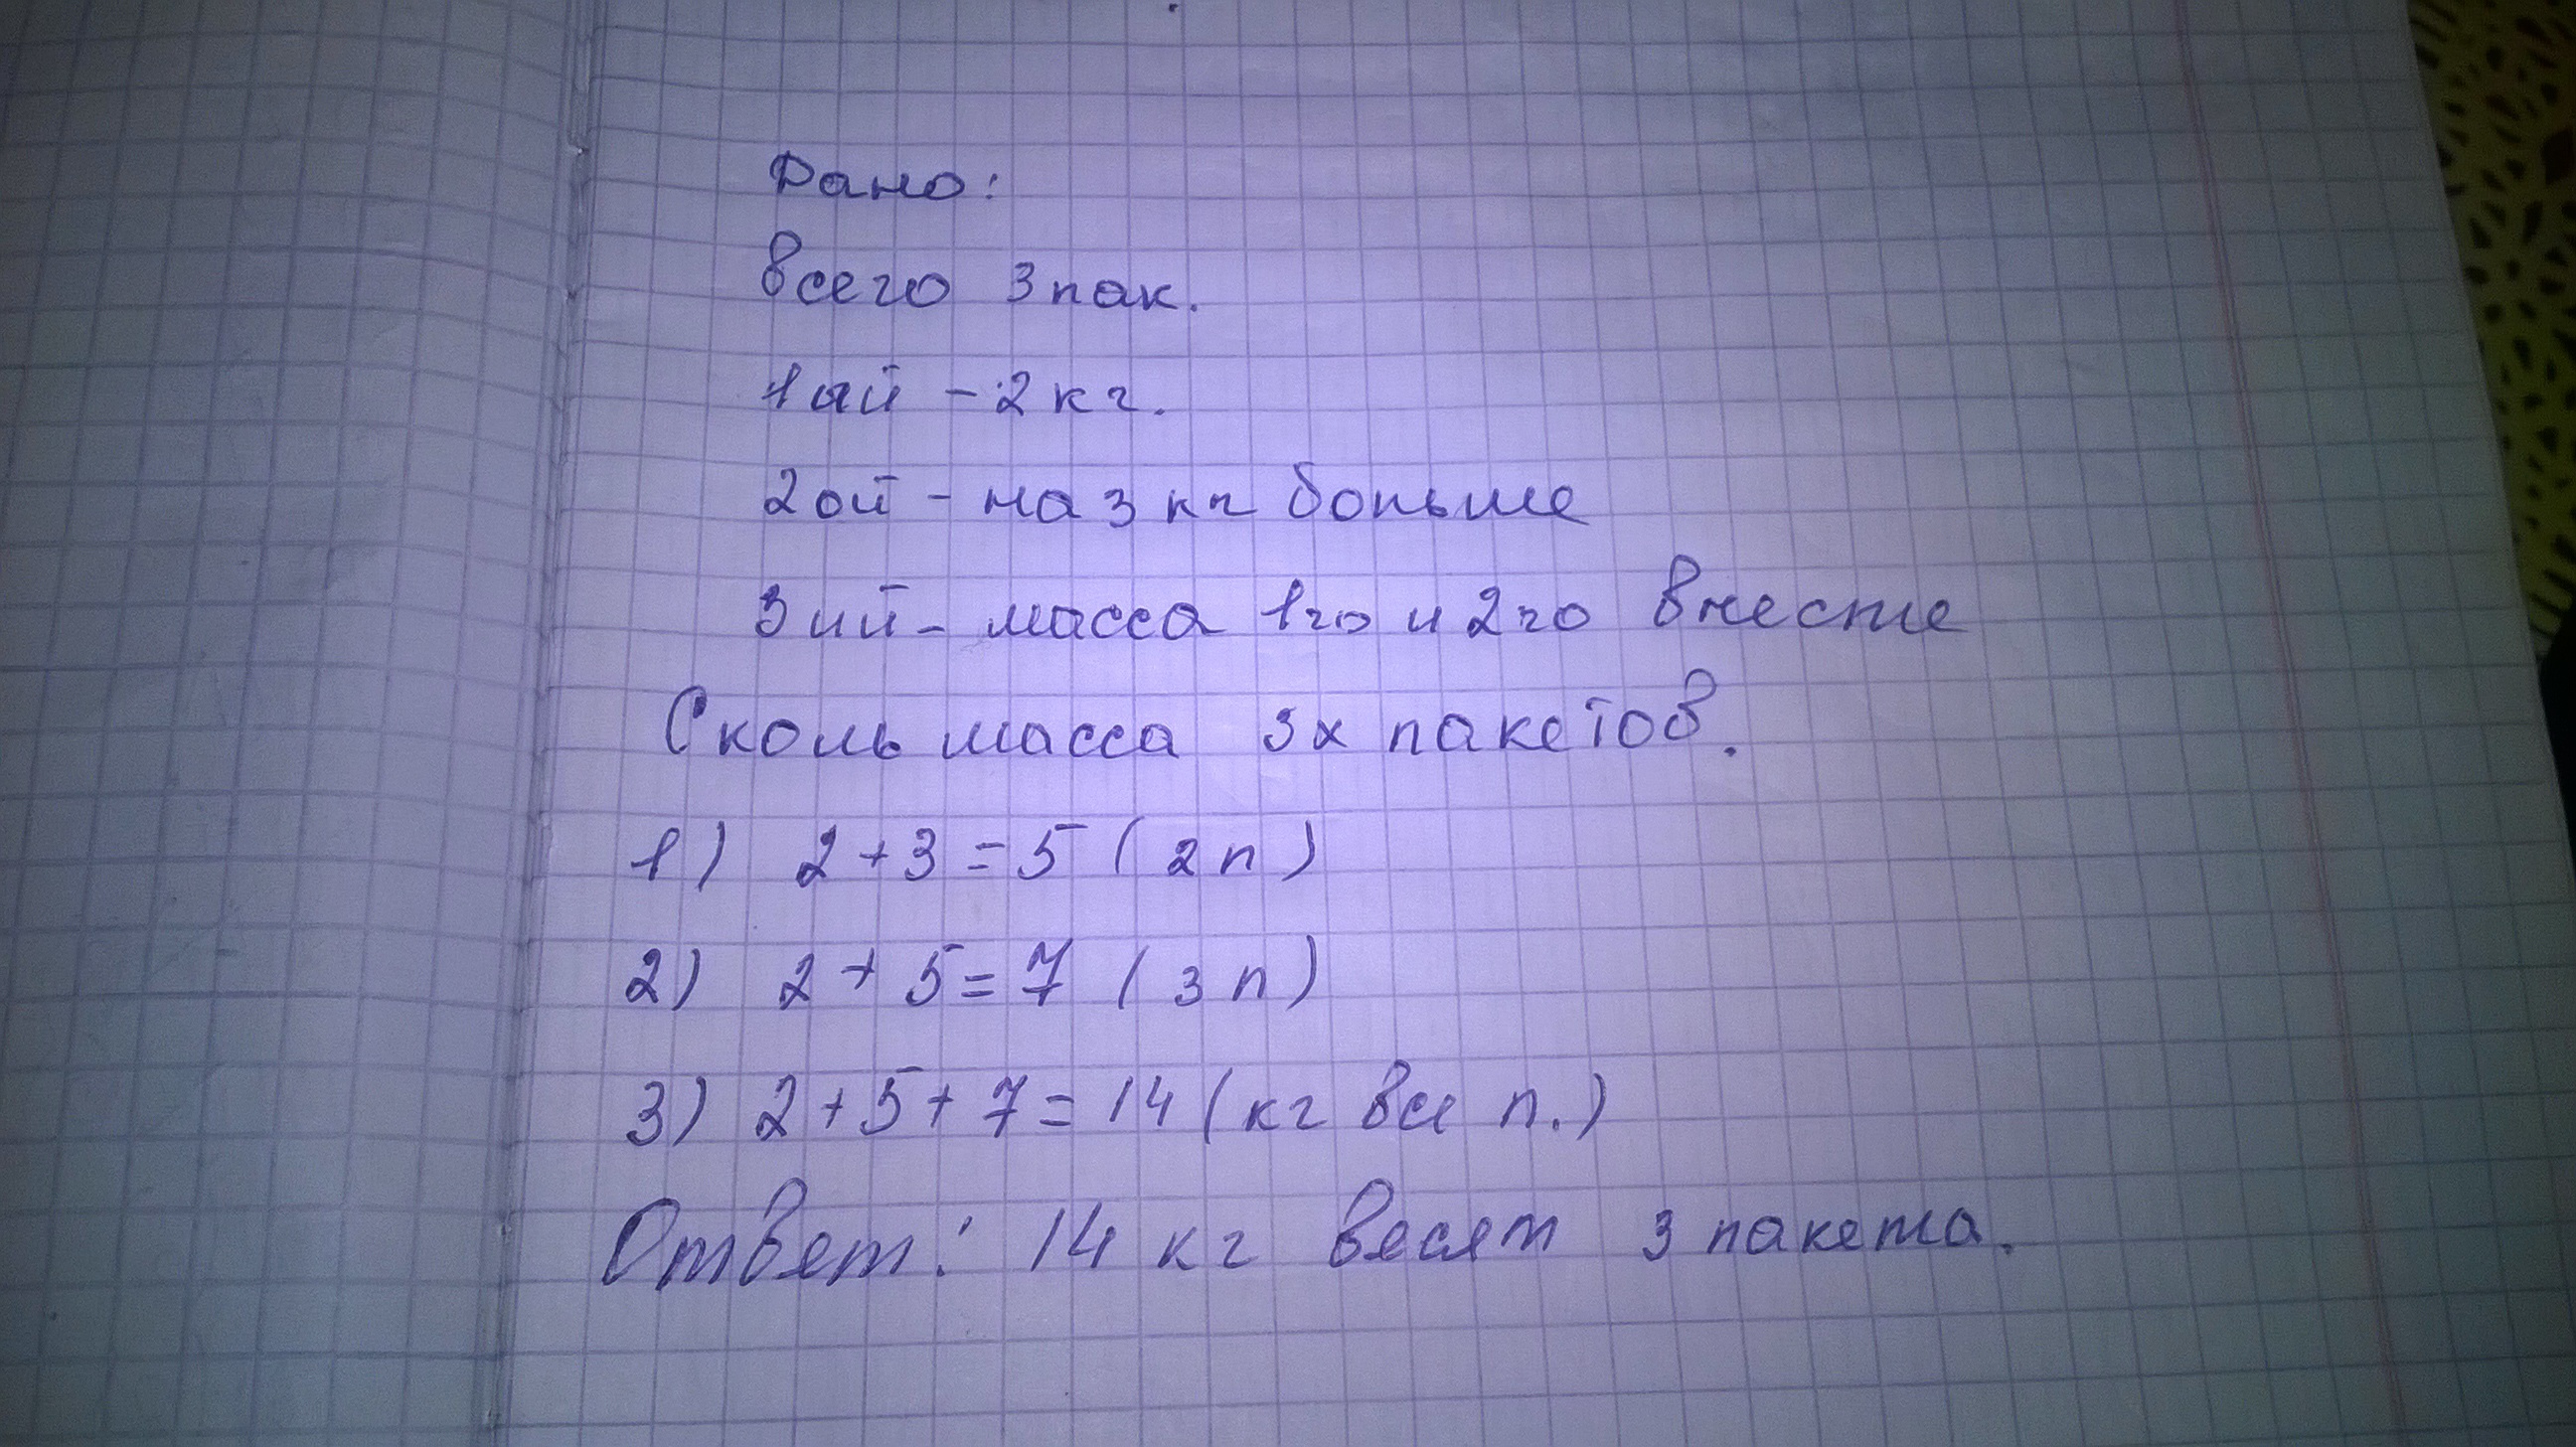 Дано:
Всего 3 пак.
1ый - 2 кг.
2ой - на 3 кг больше
3ий - масса 1го и 2го вместе
Сколь масса 3х пакетов.
1) 2 + 3 = 5 ( 2 п )
2) 2 + 5 = 7 ( 3 п )
3) 2 + 5 + 7 = 14 ( кг все п. )
Ответ: 14 кг весят 3 пакета.